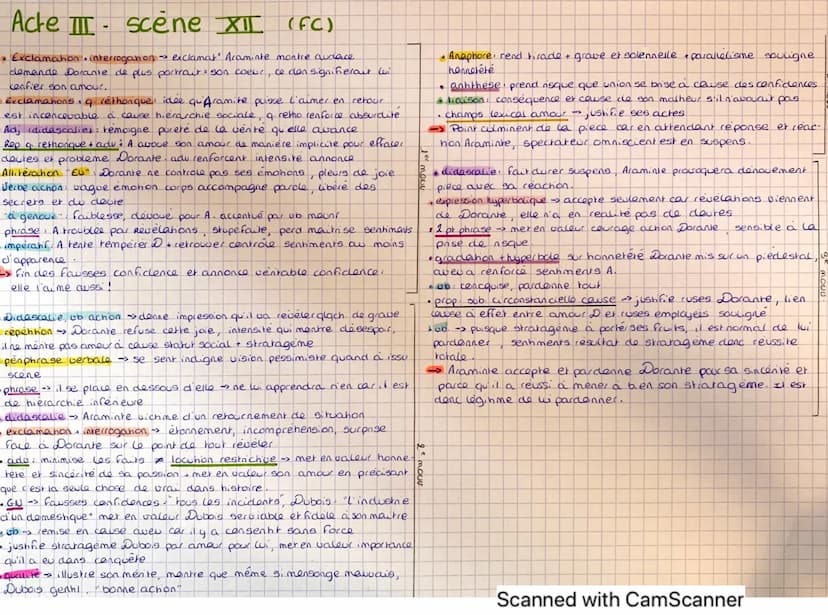 Acte III - scène XII (FC)
• Exclamation + interrogation → exclamat° Araminte montre audace
demande Dorante de plus portrait = son coeur, ce don signifierait lui
confier son amour.
Exclamations + q. réthorique : idée qu'Aramite puisse l'aimer en retour
est inconcevable à cause hiérarchie sociale, q rétho renforce absurdité
Adj (didascalie) : témoigne pureté de la vérité qu'elle avance
Rép q. réthorique + adv : A avoue son amour de manière implicite pour effacer
doutes et problème Dorante. adv renforcent intensité annonce
Allitération "EU" : Dorante ne controle pas ses émotions, pleurs de joie
Verbe action : vague émotion corps accompagne parole, libéré des
secrets et du doute
"à genoux" : faiblesse, dévoué pour A. accentué par vb mourir
phrase : A troublée par révélations, stupéfaite, perd maitrise sentiments
impératif : A tente tempérer D + retrouver contrôle sentiments au moins
d'apparence.
→ fin des fausses confidence et annonce véritable confidence :
elle l'aime aussi !
Didascalie, vb action → donne impression qu'il va révéler qlqch de grave
répétition → Dorante refuse cette joie, intensité qui montre désespoir,
il ne mérite pas amour à cause statut social + stratagème
périphrase verbale → se sent indigne vision pessimiste quand à issu
scène
phrase → il se place en dessous d'elle → ne lui apprendra rien car il est
de hiérarchie inférieure
didascalie → Araminte victime d'un retournement de situation
exclamation + interrogation → étonnement, incompréhension, surprise
face à Dorante sur le point de tout révéler
• adv : minimise les faits ≠ locution restrictive → met en valeur honne-
teté et sincérité de sa passion + met en valeur son amour en précisant
que c'est la seule chose de vrai dans histoire.
• GN → fausses confidences = "tous les incidents", Dubois = "l'industrie
d'un domestique" met en valeur Dubois serviable et fidèle à son maitre
• vb → remise en cause aveu car il y a consenti sans force
• justifie stratagème Dubois par amour pour lui, met en valeur importance
qu'il a eu dans conquête
• qualité → illustre son mérite, montre que même si mensonge mauvais,
Dubois gentil. "bonne action"
2e mouv
1er mouv
• Anaphore : rend tirade + grave et solennelle + parallélisme souligne
honnêteté
• antithèse : prend risque que union se brise à cause des confidences
• liaison : conséquence et cause de son malheur s'il n'avouait pas
• champs lexical amour → justifie ses actes
→ Point culminent de la pièce car en attendant réponse et réac-
tion Araminte, spectateur omniscient est en suspens.
• didascalie : fait durer suspens, Araminte provoquera dénouement
pièce avec sa réaction.
• expression hyperbolique → accepte seulement car révélations viennent
de Dorante, elle n'a en réalité pas de doutes
• 2 pt phrase → met en valeur courage action Dorante, sensible à la
prise de risque
• gradation + hyperbole sur honnêteté Dorante mis sur un piédestal,
aveu a renforcé sentiments A.
• vb : conquise, pardonne tout
• prop. sub circonstancielle cause → justifie ruses Dorante, lien
cause à effet entre amour D et ruses employés souligné
• vb → puisque stratagème à porté ses fruits, il est normal de lui
pardonner, sentiments résultat de stratagème donc réussite
totale.
→ Araminte accepte et pardonne Dorante pour sa sincérité et
parce qu'il a réussi à mener à bien son stratagème. Il est
donc légitime de lui pardonner.
3e mouv
Scanned with CamScanner